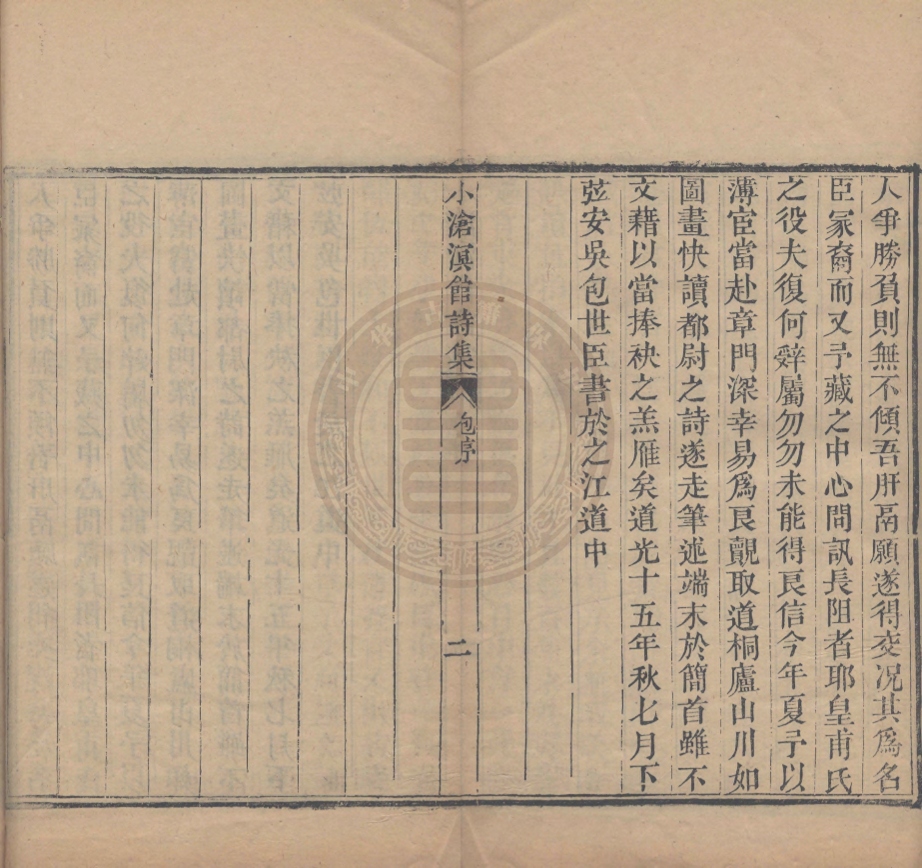 人爭勝負則無不傾吾肝鬲願遂得交况其爲名
臣冢裔而又予藏之中心問訊長阻者耶皇甫氏
之役夫復何辭屬勿勿未能得良信今年夏予以
薄宦當赴章門深幸易爲良覿取道桐廬山川如
圖畫快讀都尉之詩遂走筆述端末於簡首雖不
文藉以當捧袂之羔雁矣道光十五年秋七月下
弦安吳包世臣書於之江道中
小滄溟館詩集
包序
二